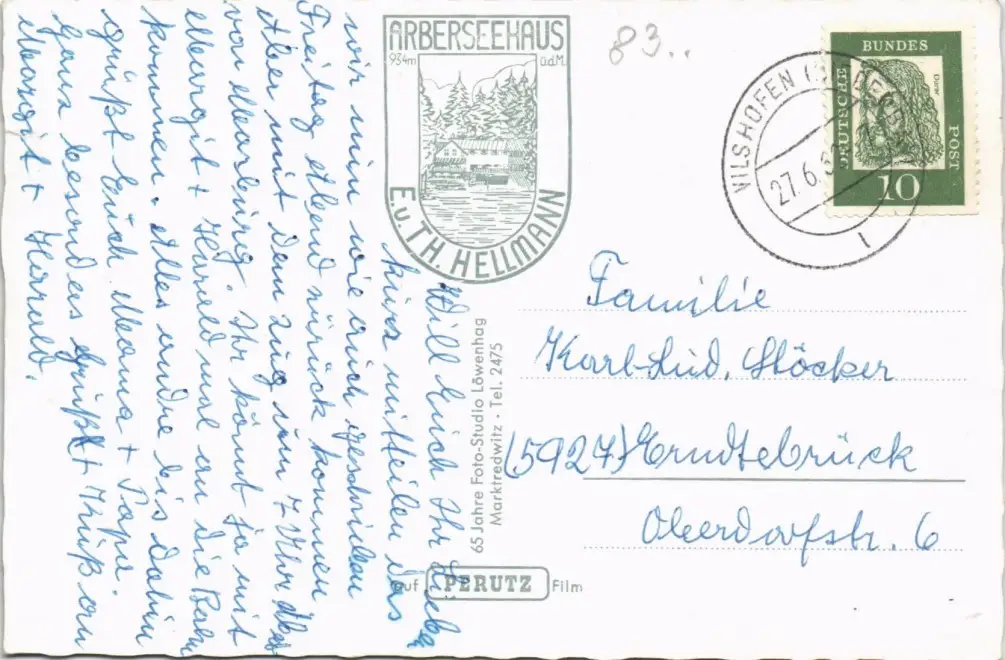 ARBERSEEHAUS
934m ü.d.M.
E.u.TH. HELLMANN
83..
VILSHOFEN
27.6.6
1
DEUTSCHE BUNDES POST
Dürer
10
Familie
Karl-Lud. Stöcker
(5927) Erndtebrück
Oberdorfstr. 6
65 Jahre Foto-Studio Löwenhag
Marktredwitz - Tel. 2475
auf PERUTZ Film
Will Euch Ihr Lieben
kurz mitteilen das
wir nun wie auch geschrieben
Freitag Abend zurück kommen
Aber mit dem Zug um 7 Uhr
von Marburg. Ihr könnt ja mit
Margit + Harald mal an die Bahn
kommen. Alles andre bis dahin
grüßt Euch Mama + Papa.
Ganz besonders Gruß + Kuß an
Margit + Harald.